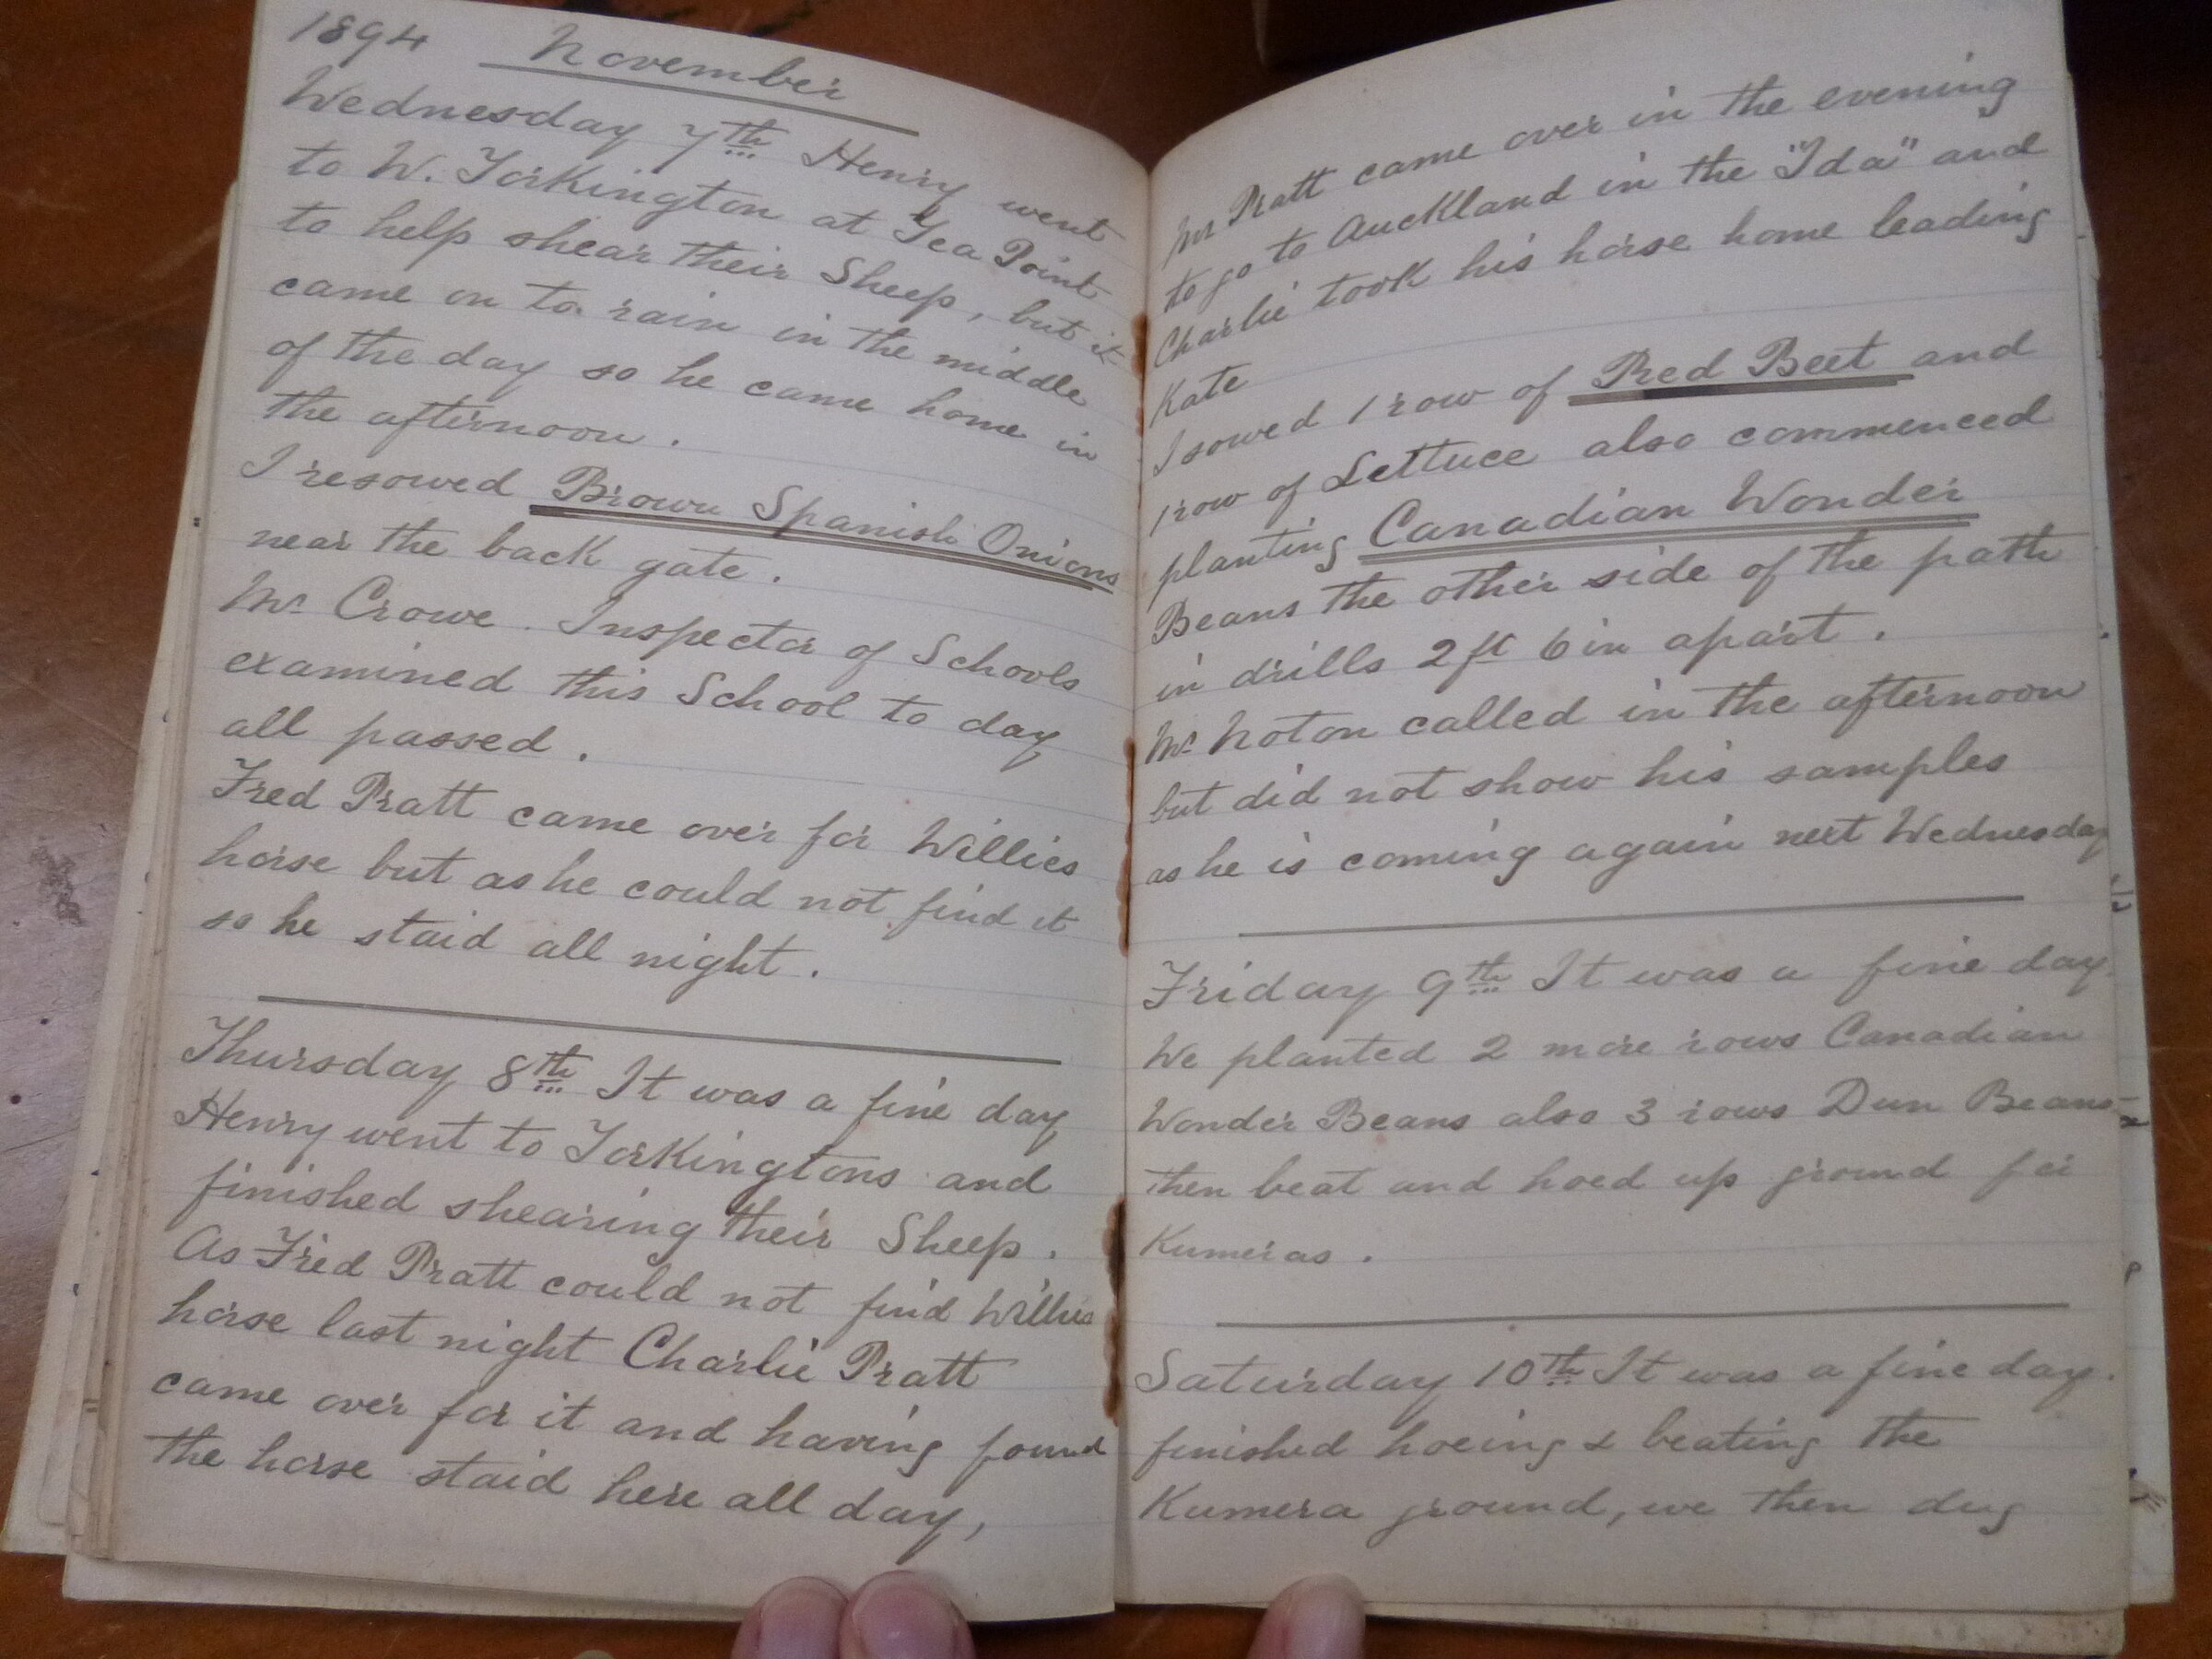 1894 November
Wednesday 7th Henry went
to W. Torkington at Tea Point
to help shear their Sheep, but it
came on to rain in the middle
of the day so he came home in
the afternoon.
I resowed Brown Spanish Onions
near the back gate.
Mr Crowe. Inspector of Schools
examined this School to day
all passed.
Fred Pratt came over for Willies
horse but as he could not find it
so he staid all night.
Thursday 8th It was a fine day
Henry went to Torkingtons and
finished shearing their Sheep.
As Fred Pratt could not find Willies
horse last night Charlie Pratt
came over for it and having found
the horse staid here all day,
Mr Pratt came over in the evening
to go to Auckland in the "Ida" and
Charlie took his horse home leading
Kate
I sowed 1 row of Red Beet and
1 row of Lettuce also commenced
planting Canadian Wonder
Beans the other side of the path
in drills 2 ft 6 in apart.
Mr Noton called in the afternoon
but did not show his samples
as he is coming again next Wednesday
Friday 9th It was a fine day
We planted 2 more rows Canadian
Wonder Beans also 3 rows Dun Beans
then beat and hoed up ground for
Kumeras.
Saturday 10th It was a fine day.
finished hoeing & beating the
Kumera ground, we then dug